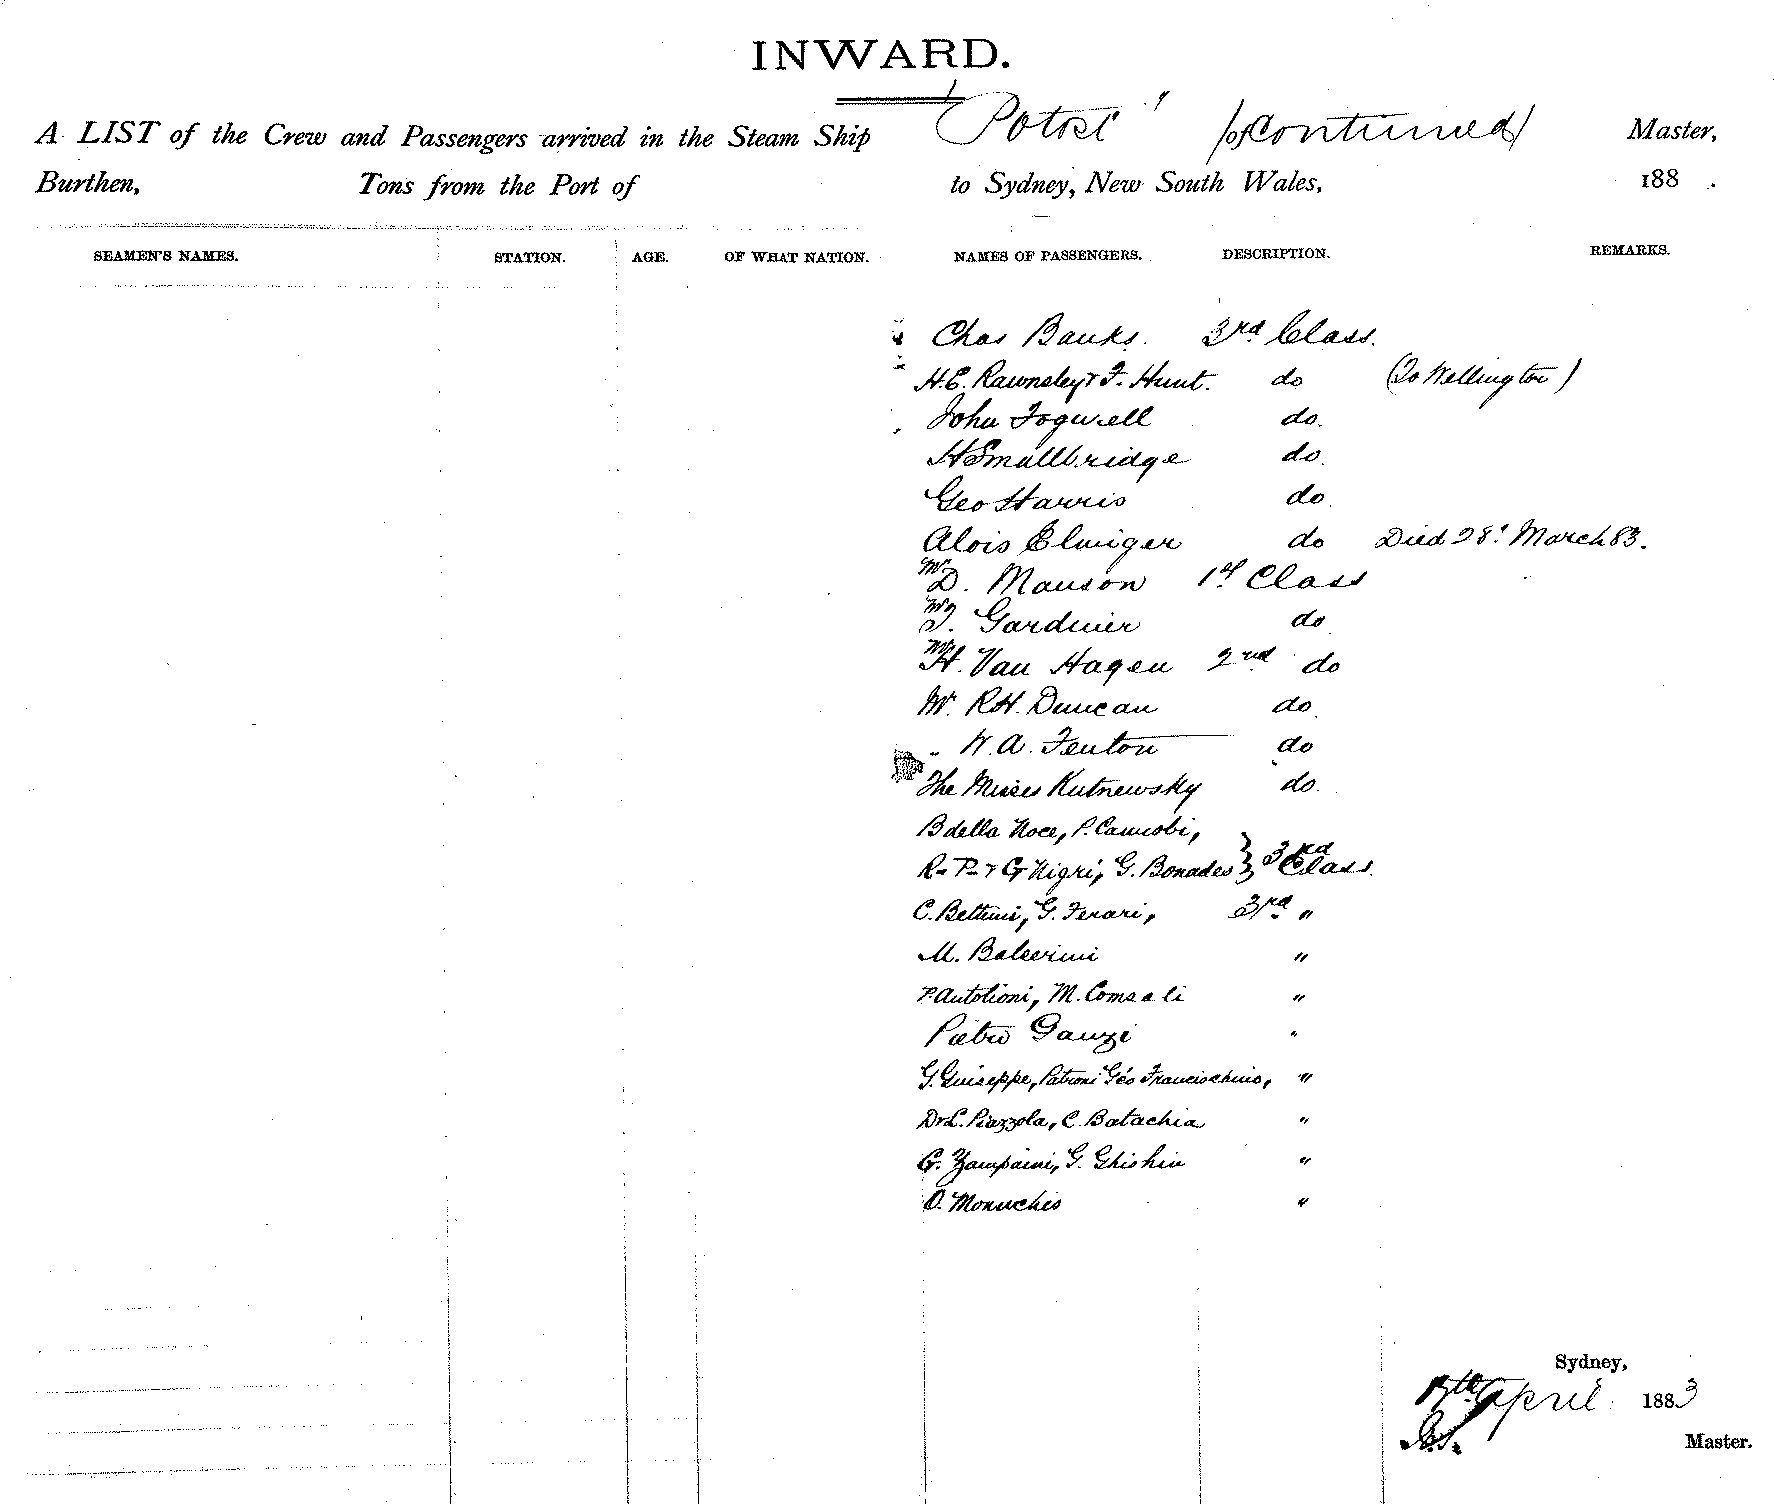 INWARD.
A LIST of the Crew and Passengers arrived in the Steam Ship "Potosi" of (Continued) Master,
Burthen, Tons from the Port of to Sydney, New South Wales, 188 .
SEAMEN'S NAMES. STATION. AGE. OF WHAT NATION. NAMES OF PASSENGERS. DESCRIPTION. REMARKS.
Chas Banks. 3rd Class.
H.E. Rawnsley & F. Hunt. do (To Wellington)
John Fogwell do.
H Smallbridge do.
Geo Harris do.
Alois Elmiger do Died 28th March 83.
Mr D. Manson 1st Class
Mr T. Gardiner do
Mr H. Van Hagen 2nd do
Mr. R.H. Duncan do.
" W.A. Fenton do
The Misses Kutnewsky do.
B della Noce, P. Camusbi,
R- P- & G Nigri, G. Bonades } 3rd Class.
C. Bettini, G. Ferari, 3rd "
M. Balerini "
P. Antolioni, M. Comsali "
Pietro Ganzi "
G. Guiseppe, Patroni Geo Francischino, "
Dr L. Piazzola, C. Batachia "
G. Zampaini, G. Ghishin "
O. Monuchis "
Sydney,
April 1883
Master.